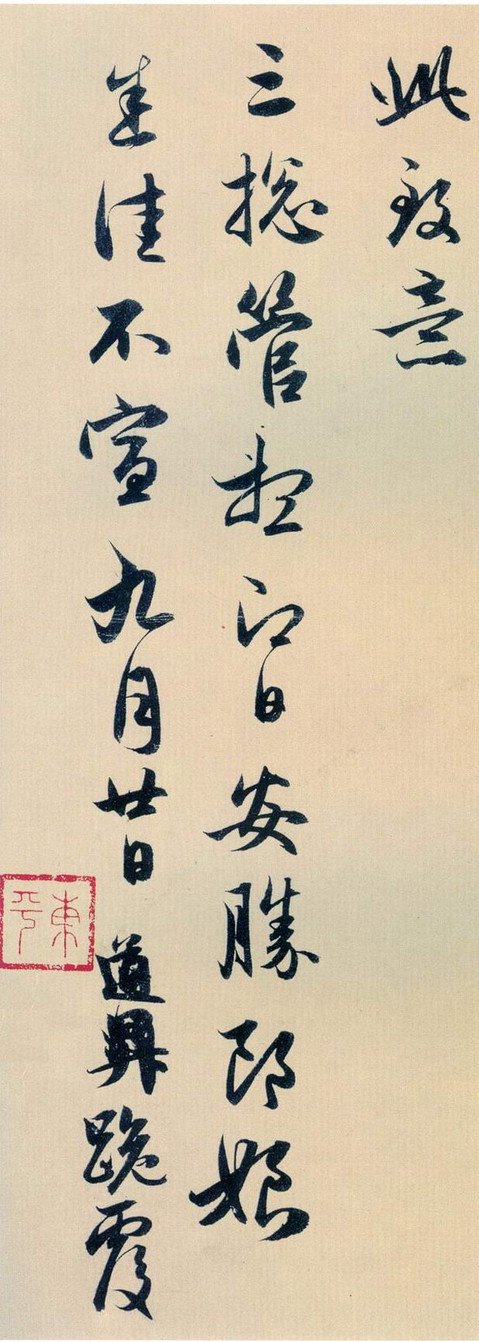 此致意
三揔管想即日安勝郎娘
悉佳不宣九月廿日 道昇跪覆
東平